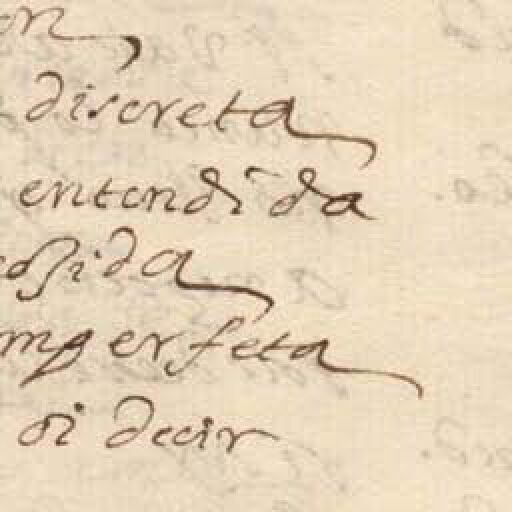 on,
discreta
entendida
cossida
imperfeta
oi decir